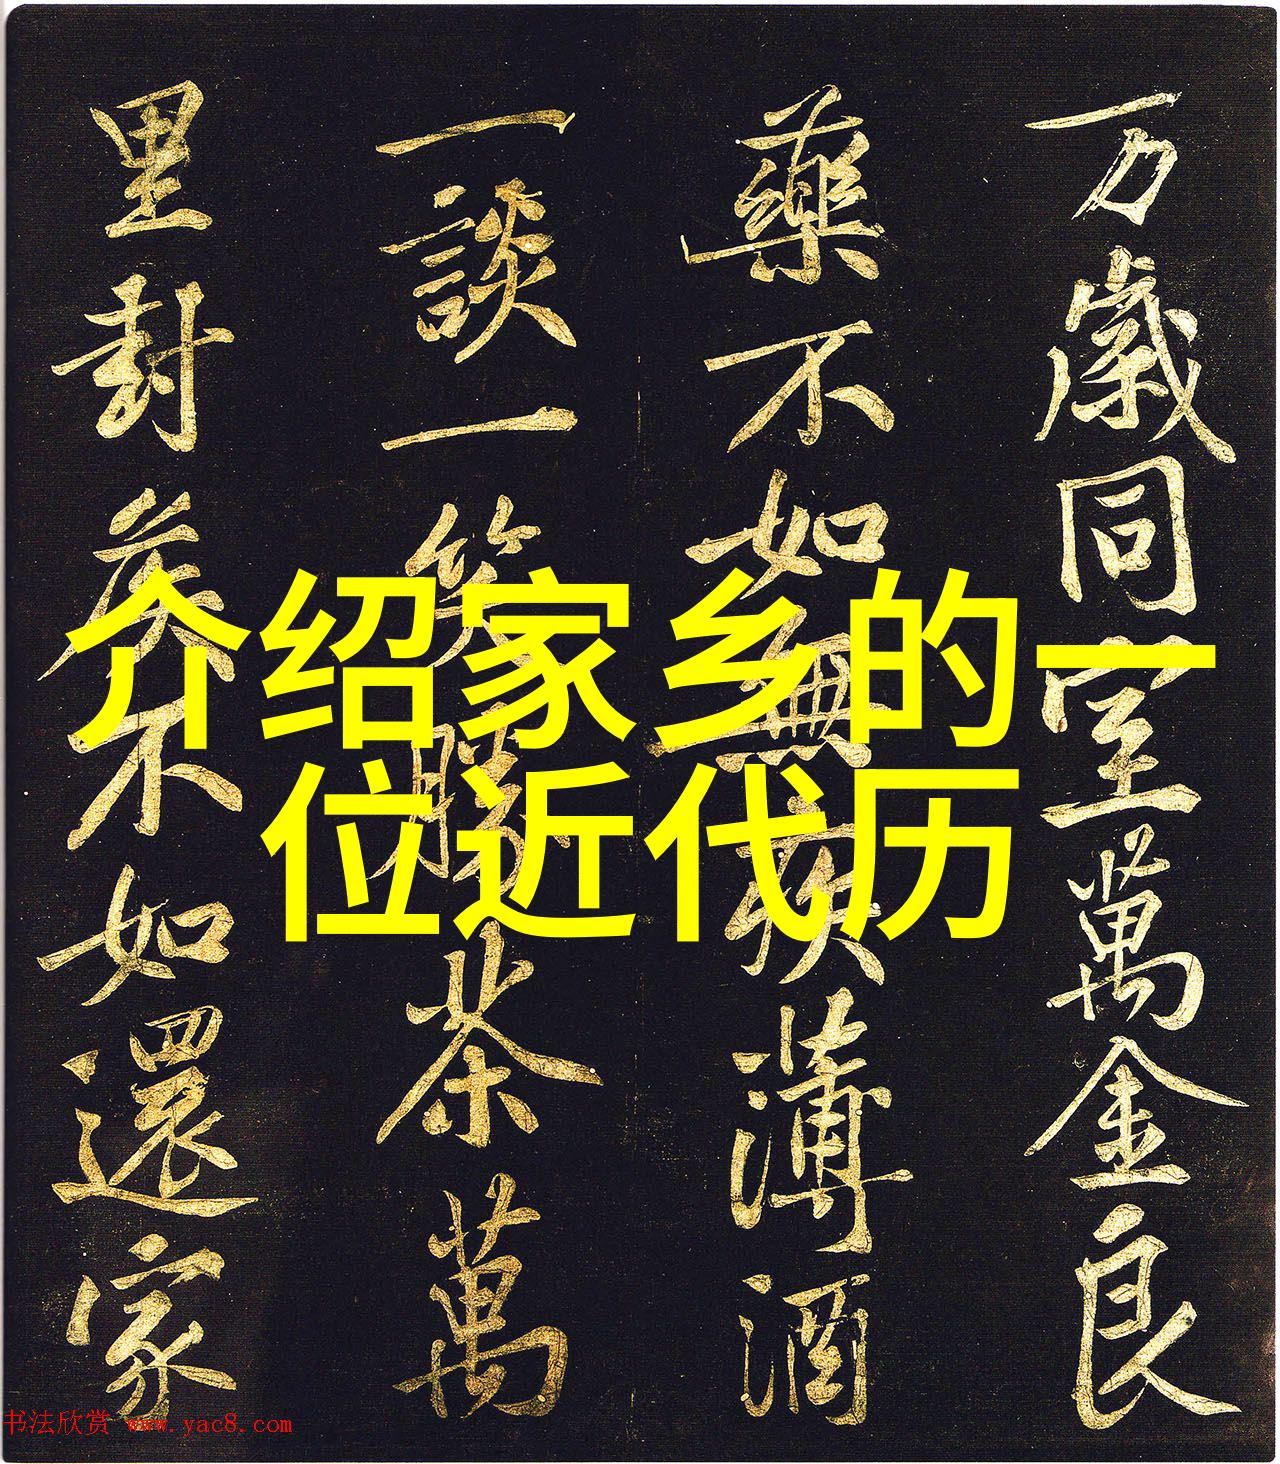 介绍家乡的一
位近代历
万歲同室萬金良
藥不如無疾薄酒
一談一笑勝茶萬
里封矦不如還家
书法欣赏 www.yac8.com